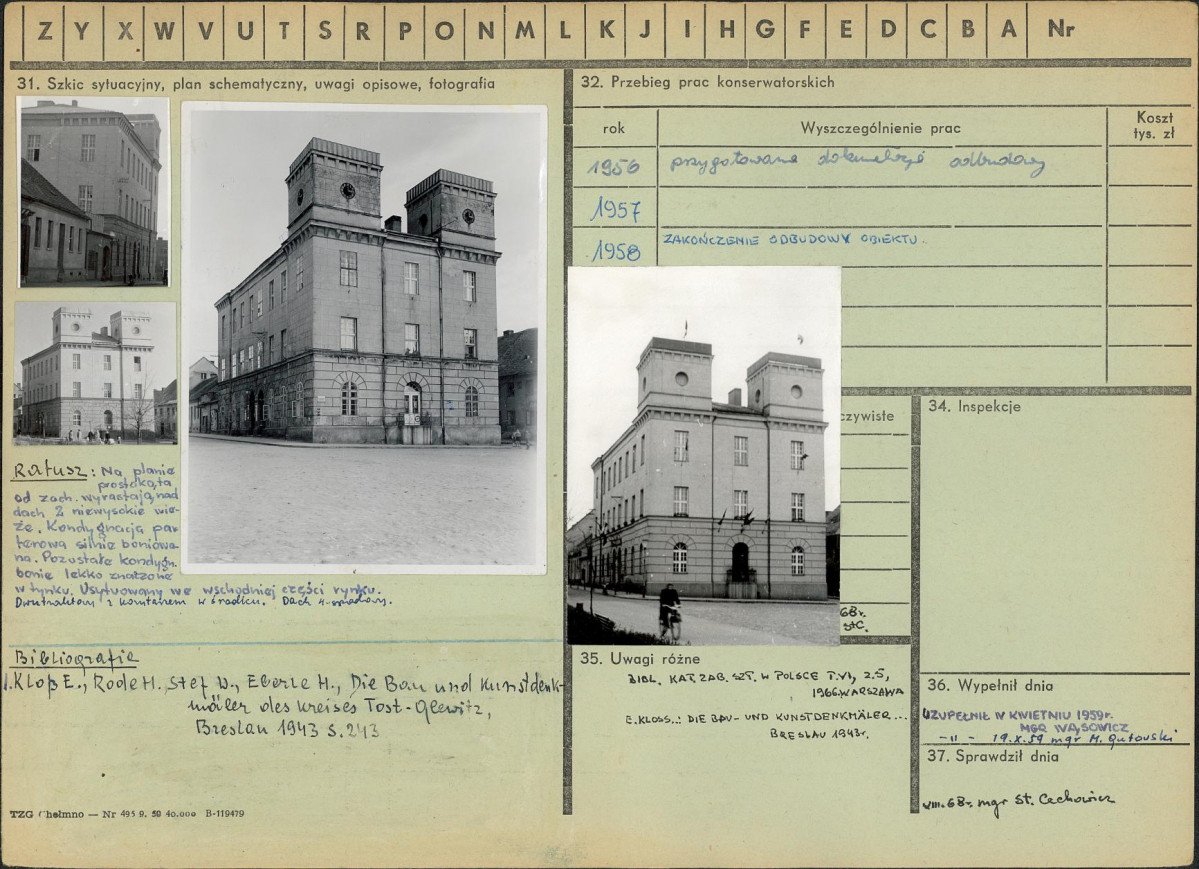 Z Y X W V U T S R P O N M L K J I H G F E D C B A Nr
31. Szkic sytuacyjny, plan schematyczny, uwagi opisowe, fotografia
Ratusz: Na planie
prostokąta
od zach. wyrastają nad
dach 2 niewysokie wie-
że. Kondygnacja par-
terowa silnie boniowa-
na. Pozostałe kondygn.
bonie lekko znaczone
w tynku. Usytuowany we wschodniej części rynku.
Dwutraktowy z korytarzem w środku. Dach 4-spadowy.
Bibliografia
1. Kloß E., Rode H., Stef W., Eberle H., Die Bau und Kunstdenk-
mäler des Kreises Tost-Glewitz,
Breslau 1943 s. 243
TZG Chełmno — Nr 495 9. 59 40.000 B-119479
32. Przebieg prac konserwatorskich
rok Wyszczególnienie prac Koszt
tys. zł
1956 przygotowane dokumentacje odbudowy
1957
1958 ZAKOŃCZENIE ODBUDOWY OBIEKTU.
czywiste
68r.
St.C.
34. Inspekcje
35. Uwagi różne
BIBL. KAT. ZAB. SZT. W POLSCE T. VI, Z. 5,
1966. WARSZAWA
E. KLOSS..: DIE BAU- UND KUNSTDENKMÄLER...
BRESLAU 1943r.
36. Wypełnił dnia
UZUPEŁNIŁ W KWIETNIU 1959r.
MGR WĄSOWICZ
-II- 19.X.59 mgr M. Gutowski
37. Sprawdził dnia
VIII.68r. mgr St. Cechowicz